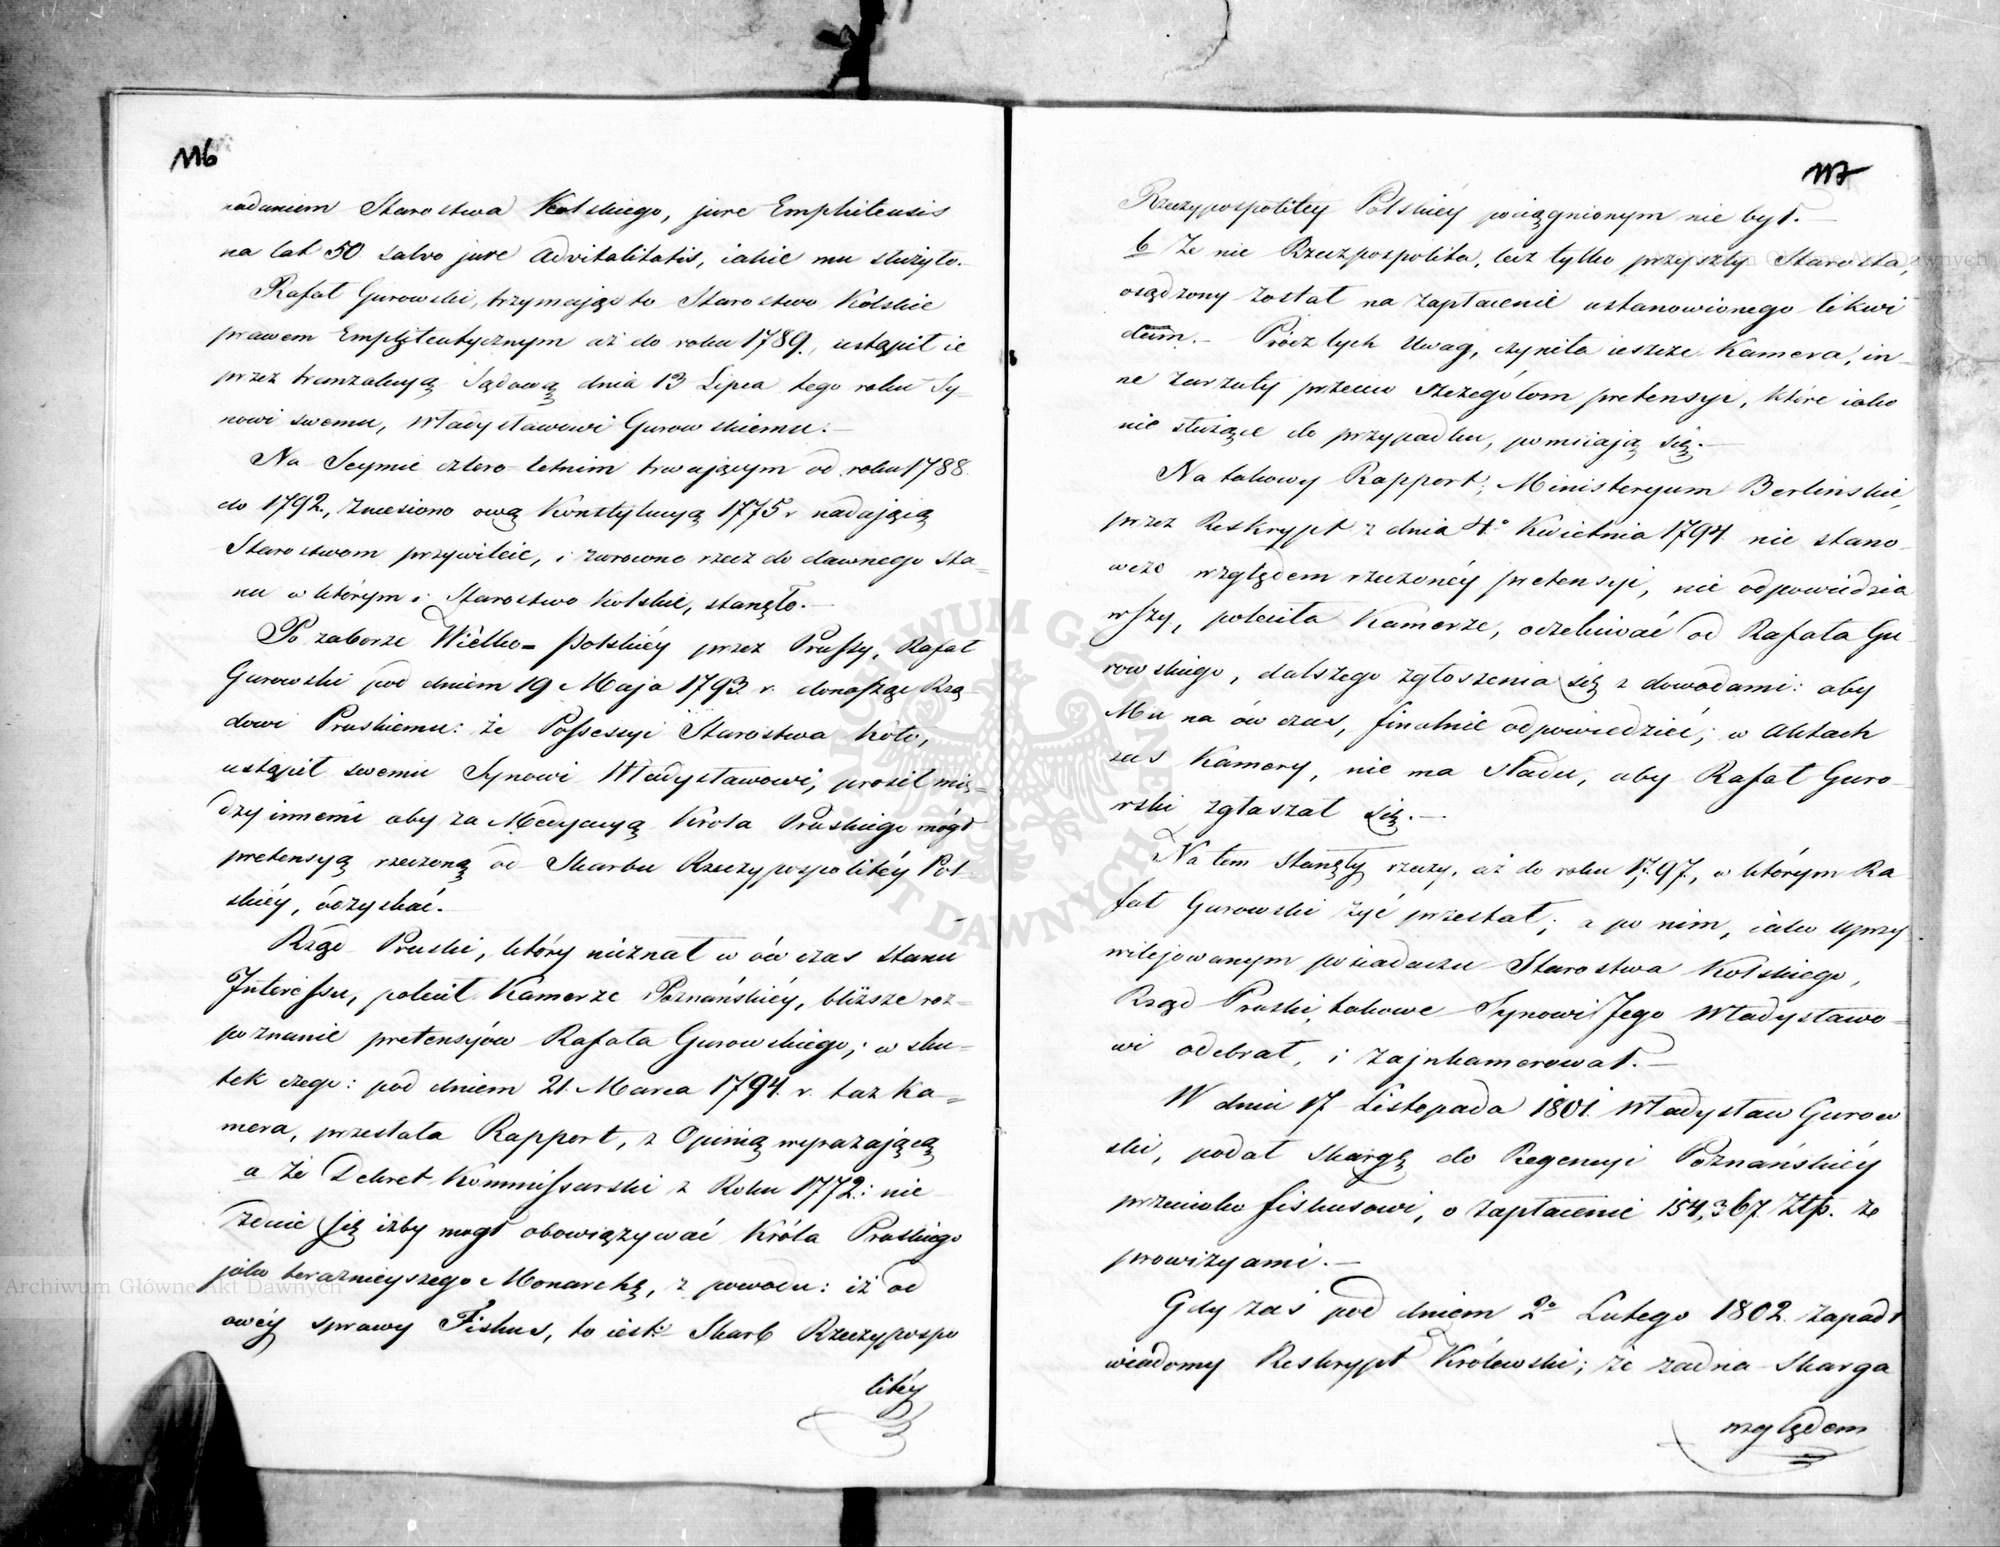 116
nadaniem Starostwa Kolskiego, jure Emphiteusis
na lat 50 salvo jure Advitalitatis, iakie mu służyło.
Rafał Gurowski, trzymając to Starostwo Kolskie
prawem Emphiteutycznym aż do roku 1789., ustąpił ie
przez tranzakcyą Sądową dnia 13 Lipca tego roku Sy-
nowi swemu, Władysławowi Gurowskiemu.—
Na Seymie cztero-letnim trwającym od roku 1788
do 1792., zniesiono ową Konstytucyą 1775 r nadającą
Starostwom przywileie, i zwrocono rzecz do dawnego sta=
nu w którym i Starostwo Kolskie, stanęło.—
Po zaborze Wielko=Polskiéy przez Prussy, Rafał
Gurowski pod dniem 19 Maja 1793. r. donosząc Rzą
dowi Pruskiemu: że Possessyi Starostwa Koło,
ustąpił swemu Synowi Władysławowi, prosił mię=
dzy innemi aby za Medyacyą Krola Pruskiego mógł
pretensyą rzeczoną od Skarbu Rzeczypospolitéy Pol
skiéy, odzyskać.—
Rząd Pruski, który nieznał w ów czas stanu
Interessu, polecił Kamerze Poznańskiéy, bliższe roz=
poznanie pretensyów Rafała Gurowskiego; w sku=
tek czego: pod dniem 21. Marca 1794. r. taż Ka=
mera, przesłała Rapport, z Opinią wyrażającą
a że Dekret Kommissarski z Roku 1772.: nie
zdaie się iżby mogł obowiązywać Króla Pruskiego
jako teraznieyszego Monarchę, z powodu: iż od
owéy sprawy Fiskus, to iest: Skarb Rzeczypospo
litéy
117
Rzeczypospolitéy Polskiéy pociągnionym nie był.—
b Że nie Rzeczpospolita, lecz tylko przyszły Starosta,
osądzony został na zapłacenie ustanowionego likwi
dum.— Prócz tych Uwag, czyniła ieszcze Kamera, in-
ne zarzuty przeciw szczegółom pretensyi, które iako
nie służące do przypadku, pomiiają się.—
Na takowy Rapport, Ministeryum Berlinskie,
przez Reskrypt z dnia 4o Kwietnia 1794. nie stano-
wczo względem rzeczonéy pretensyi, nie odpowiedzia
wszy, poleciła Kamerze, oczekiwać od Rafała Gu
rowskiego, dalszego zgłoszenia się z dowodami: aby
Mu na ów czas, finalnie odpowiedzieć; w Aktach
zas Kamery, nie ma sladu, aby Rafał Guro-
wski zgłaszał się.—
Na tem stanęły rzeczy, aż do roku 1797., w którym Ra
fał Gurowski żyć przestał; a po nim, iako uprzy
wilejowanym posiadaczu Starostwa Kolskiego,
Rząd Pruski, takowe Synowi Jego Władysławo=
wi odebrał, i zajnkamerował.—
W dniu 17 Listopada 1801. Władysław Gurow
ski, podał skargę do Regencyi Poznańskiéy
przeciwko fiskusowi, o zapłacenie 154,367. Złp. z
prowizyami.—
Gdy zaś pod dniem 2o Lutego 1802. zapadł
wiadomy Reskrypt Królewski; że żadna Skarga
względem
Archiwum Główne Akt Dawnych
ARCHIWUM GŁÓWNE AKT DAWNYCH